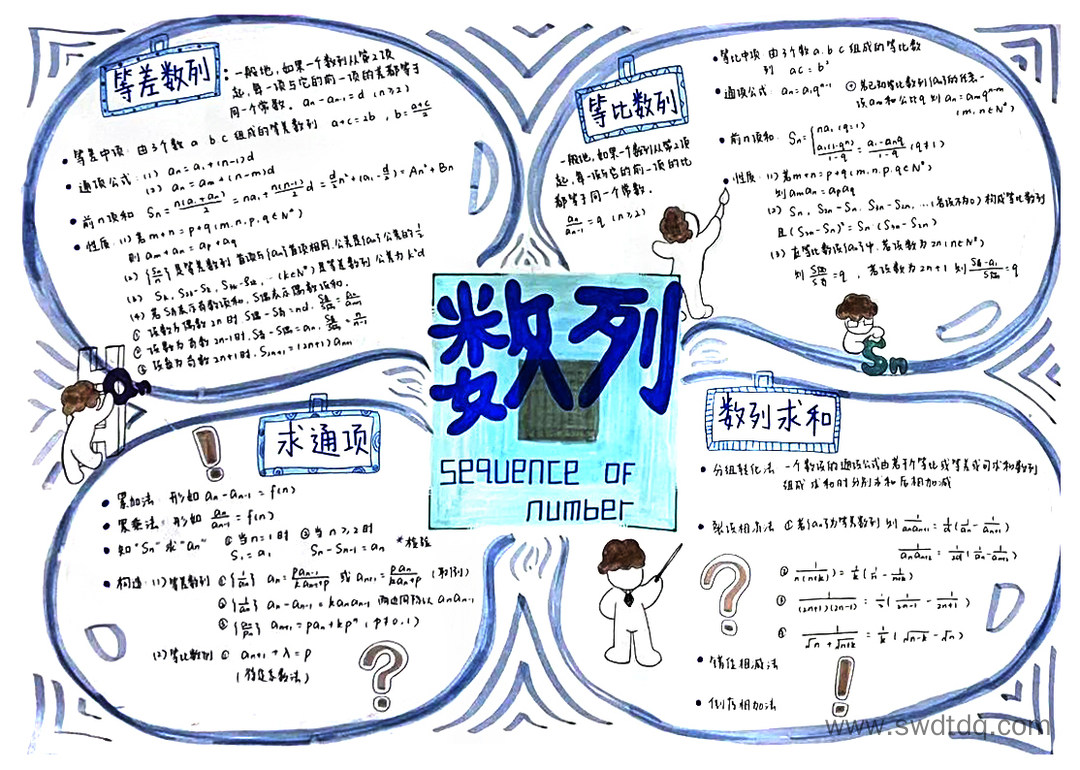 等差数列
：一般地，如果一个数列从第2项
起，每一项与它的前一项的差都等于
同一个常数。an-an-1=d (n≥2)
• 等差中项：由3个数a b c 组成的等差数列 a+c=2b , b=(a+c)/2
• 通项公式：(1) an=a1+(n-1)d
(2) an=am+(n-m)d
• 前n项和 Sn=n(a1+an)/2=na1+n(n-1)/2 d=d/2 n²+(a1-d/2)n=An²+Bn
• 性质：(1) 若m+n=p+q (m.n.p.q∈N*)
则am+an=ap+aq
(2) {Sn/n}是等差数列 首项与{an}首项相同，公差是{an}公差的1/2
(3) Sk, S2k-Sk, S3k-S2k, …(k∈N*)是等差数列 公差为k²d
(4) 若S奇表示奇数项和，S偶表示偶数项和.
① 项数为偶数2n时 S偶-S奇=nd. S奇/S偶=an/an+1
② 项数为奇数2n-1时. S奇-S偶=an. S奇/S偶=n/n-1
③ 项数为奇数2n+1时. S2n+1=(2n+1)an+1
等比数列
一般地，如果一个数列从第2项
起，每一项与它的前一项的比
都等于同一个常数.
an/an-1=q (n≥2)
• 等比中项 由3个数a.b.c 组成的等比数
列 ac=b²
• 通项公式：an=a1qⁿ⁻¹ ① 若已知等比数列{an}的任意一
项am和公比q 则an=amqⁿ⁻ᵐ
(m,n∈N*)
• 前n项和. Sn={na1 (q=1)
a1(1-qⁿ)/1-q=a1-anq/1-q (q≠1)
• 性质：(1) 若m+n=p+q (m.n.p.q∈N*)
则aman=apaq
(2) Sn, S2n-Sn, S3n-S2n, …(各项不为0) 构成等比数列
且(S2n-Sn)²=Sn(S3n-S2n)
(3) 在等比数列{an}中. 若项数为2n(n∈N*)
则 S偶/S奇=q , 若项数为2n+1 则 S奇-a1/S偶=q
数列
sequence of
number
an
Sn
求通项
• 累加法：形如 an-an-1=f(n)
• 累乘法：形如 an/an-1=f(n)
• 知“Sn”求“an” ①当n=1时 ②当n≥2时
S1=a1 Sn-Sn-1=an *检验
• 构造：(1)等差数列 ①{1/an} an=pan-1/kan-1+p 或 an+1=pan/kan+p (取倒)
②{1/an} an-an-1=kanan-1 两边同除以anan-1
③{an/pn} an+1=pan+kpⁿ (p≠0.1)
(2)等比数列 ① an+1+λ=p
(待定系数法)
数列求和
• 分组转化法 一个数列的通项公式由若干个等比或等差或可求和数列
组成 求和时分别求和后相加减
• 裂项相消法 ①若{an}为等差数列 则 1/anan+1=1/d(1/an-1/an+1)
1/anan+2=1/2d(1/an-1/an+2)
② 1/n(n+k)=1/k(1/n-1/n+k)
③ 1/(2n+1)(2n-1)=1/2(1/2n-1-1/2n+1)
④ 1/√n+√n+k=1/k(√n-k-√n)
• 错位相减法
• 倒序相加法
www.swdtdq.com